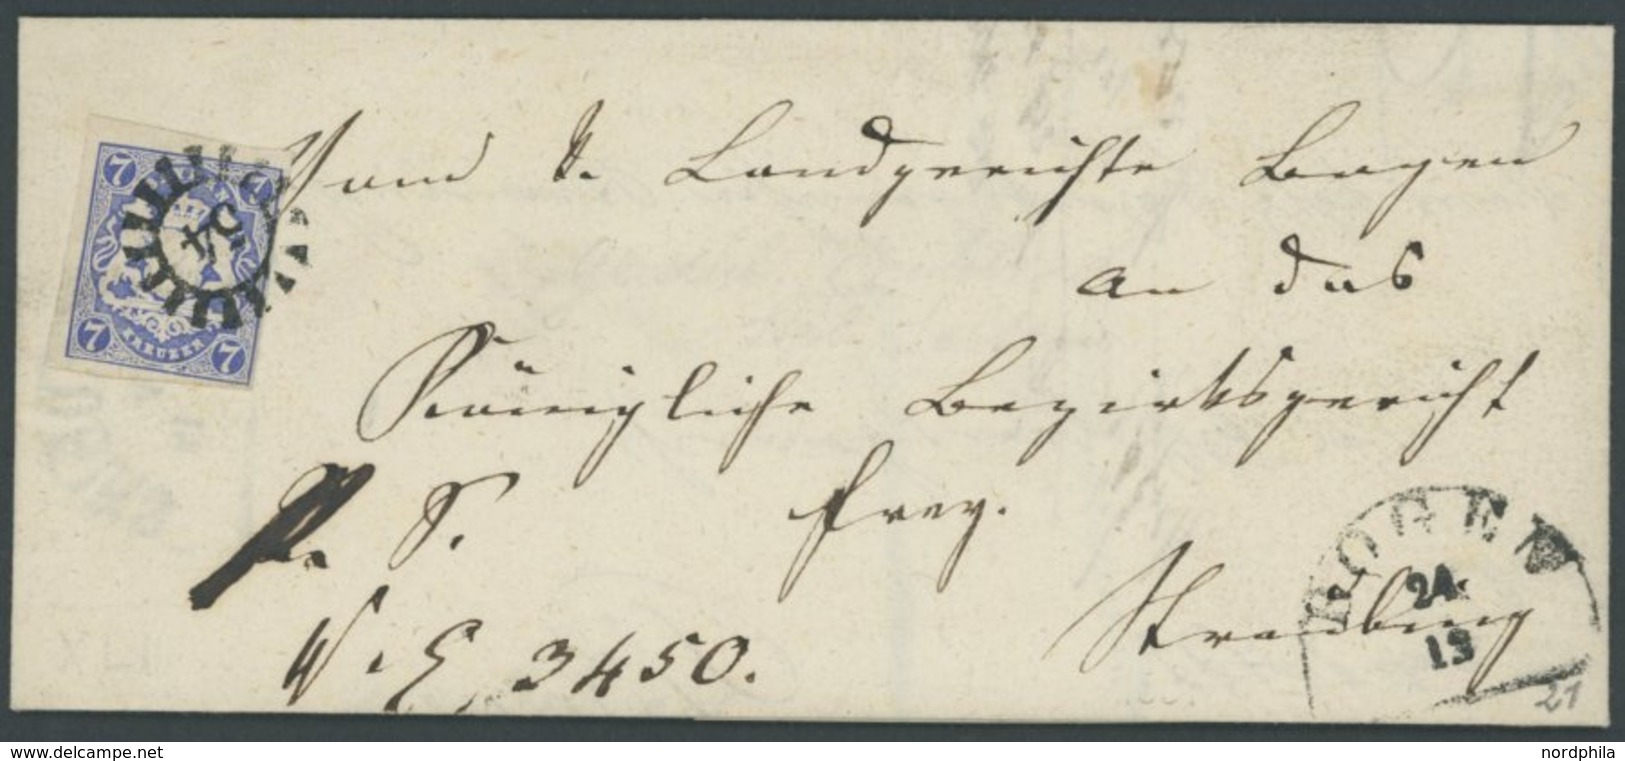 Vom K. Landgerichte Bogen
an das
Königliche Bezirksgericht
P. S. frey.
Straubing
N. E. 3450.
7 7
54
7 KREUZER 7
BOGEN
24
13
21
www.delcampe.net
nordphila